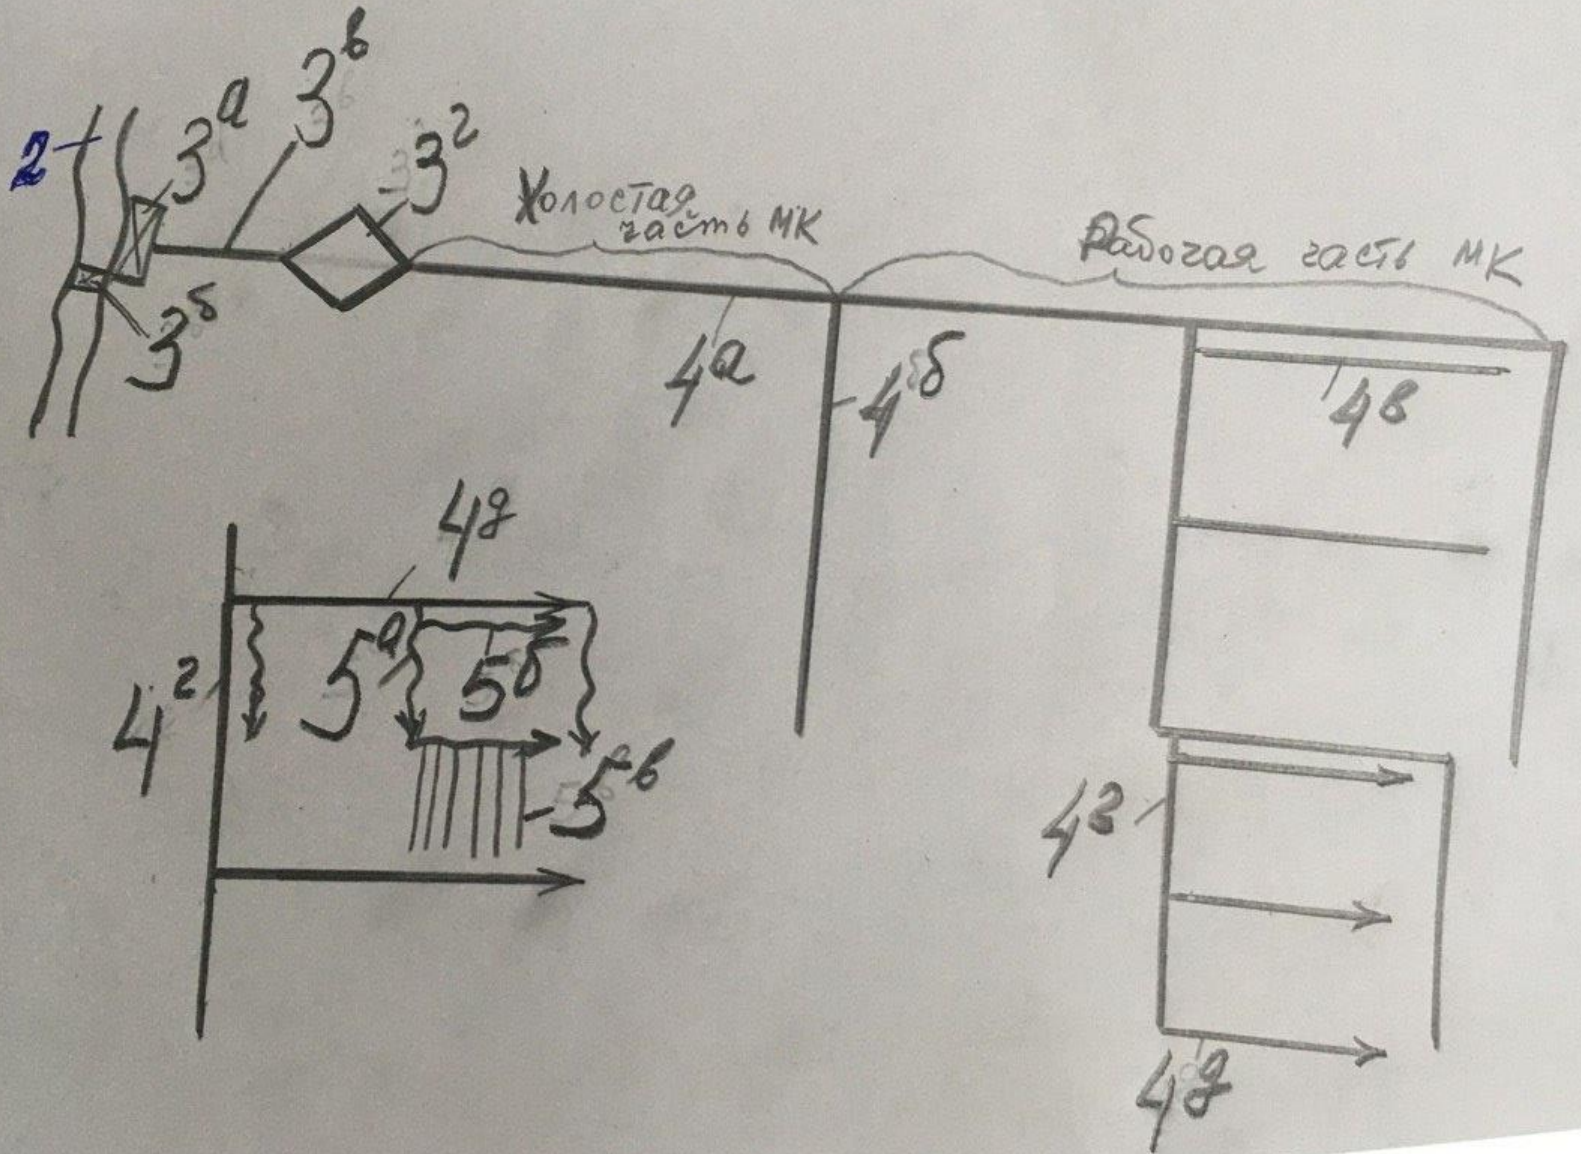 2
3а
3в
3г
3б
Холостая
часть МК
Рабочая часть МК
4а
4б
4в
4д
4г
5а
5б
5в
4г
4д